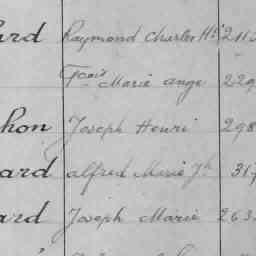 ard Raymond Charles Hi 2112
Fcois Marie ange 229
hon Joseph Henri 298
ard alfred Marie Jh 317
ard Joseph Marie 263